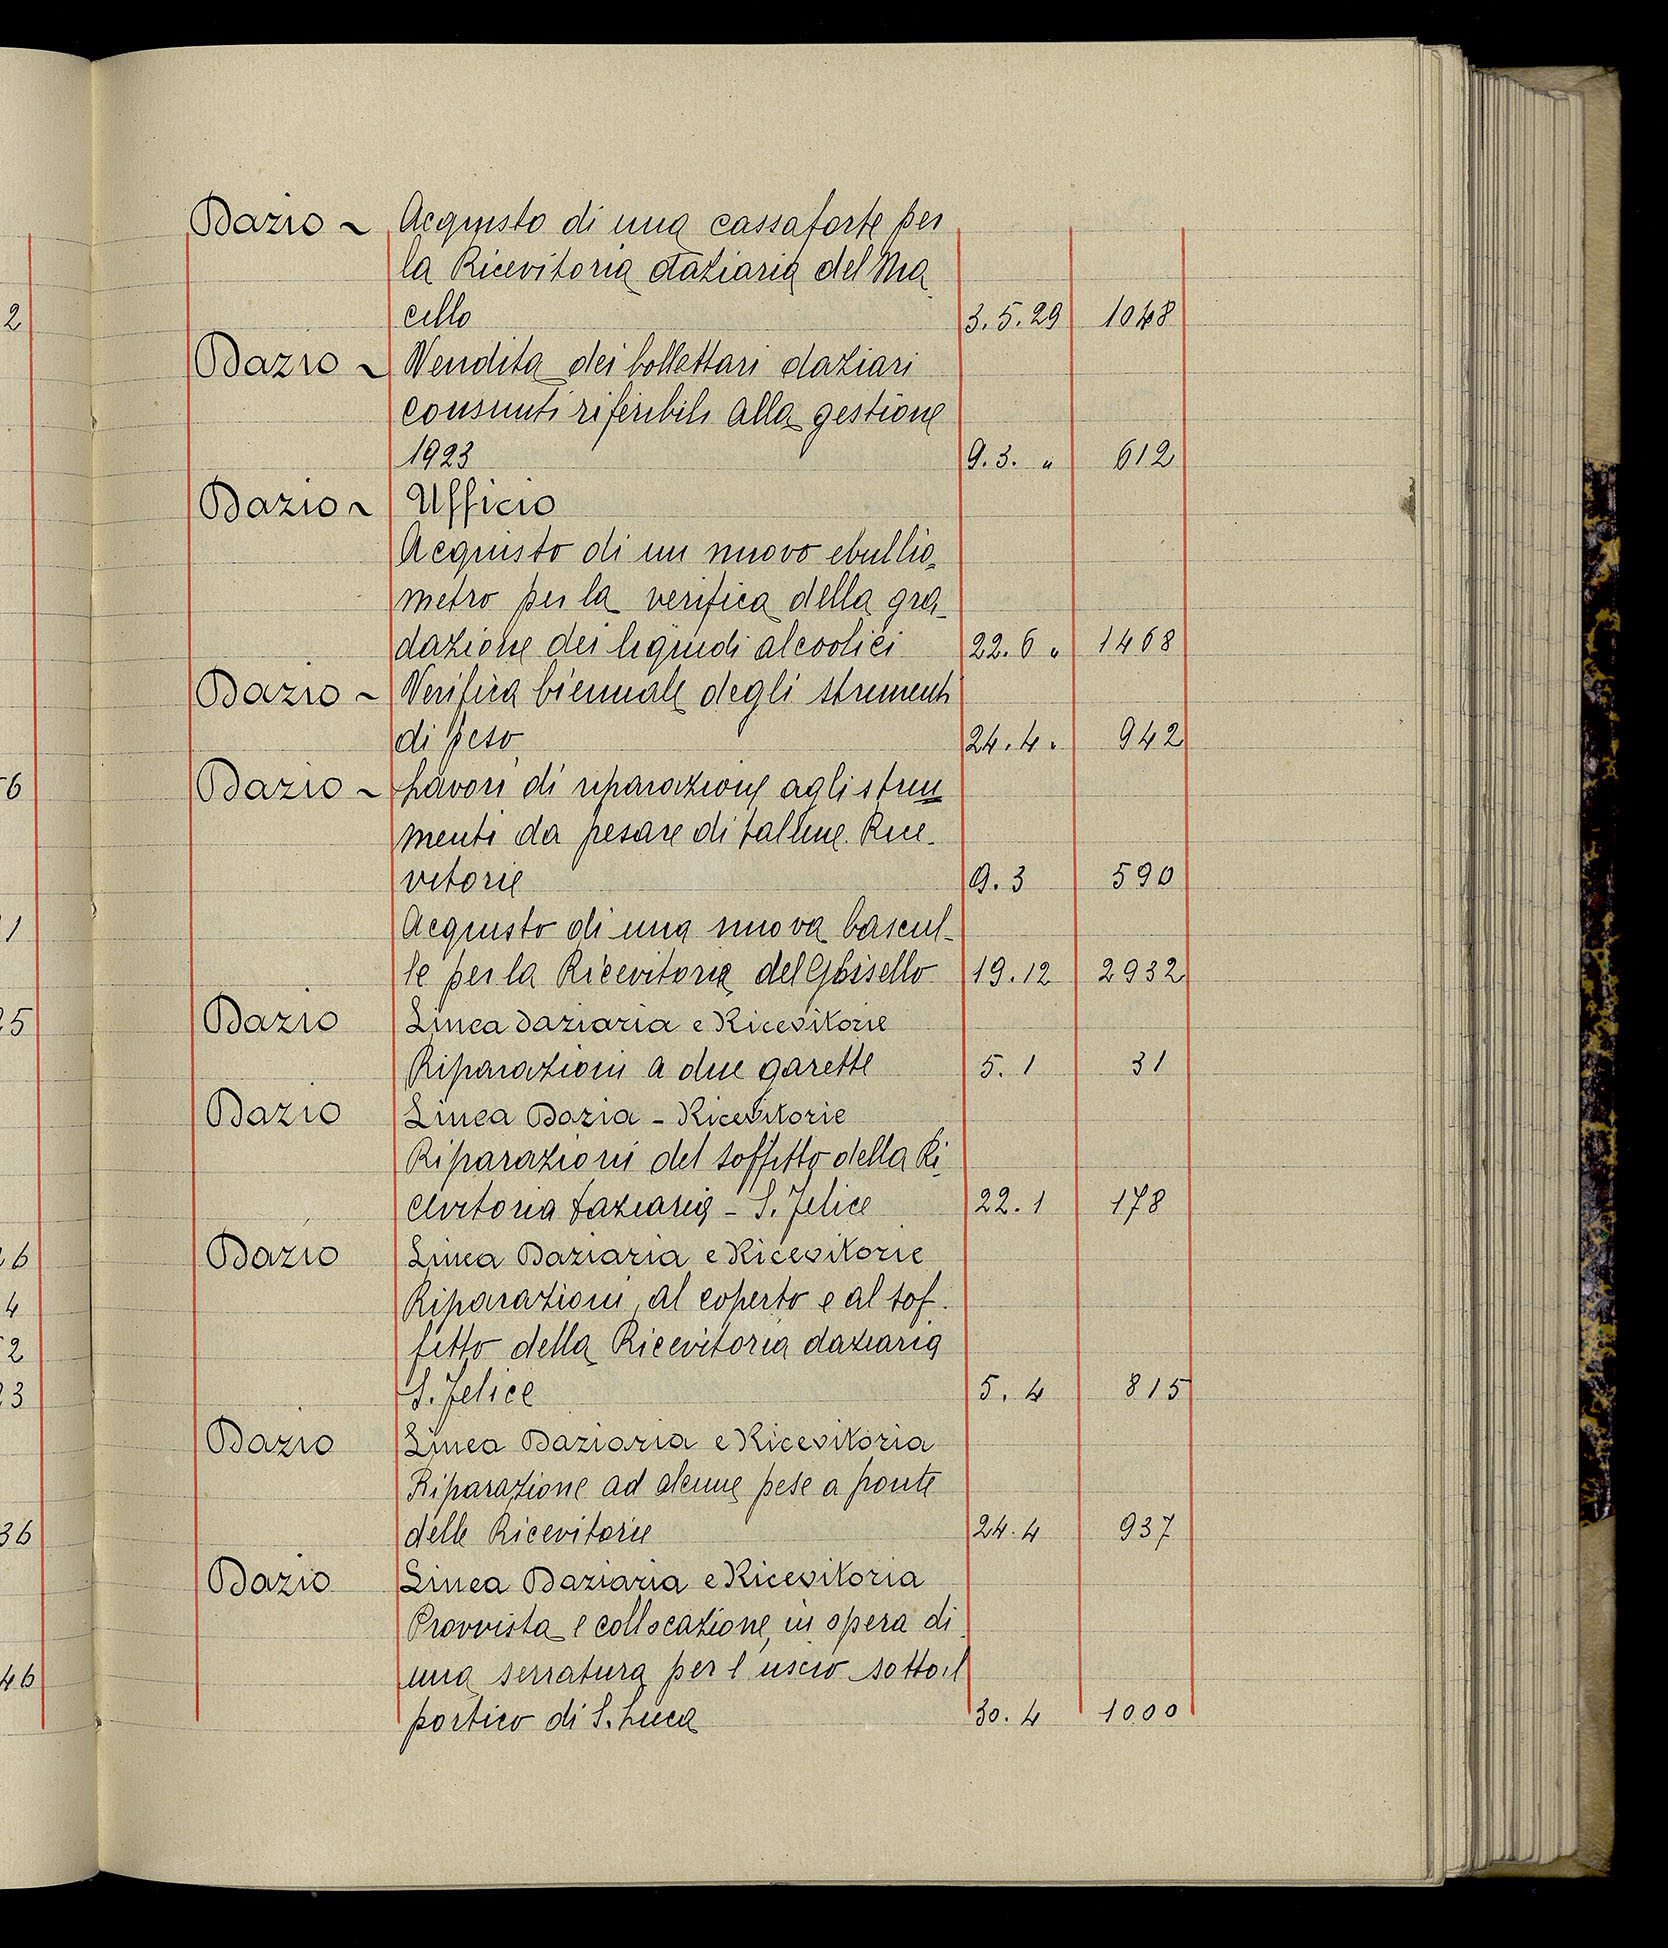 Dazio ~ Acquisto di una cassaforte per
la Ricevitoria daziaria del Ma
2 cello 3.5.29 1048
Dazio ~ Vendita dei bollettari daziari
consunti riferibili alla gestione
1923 9.3. " 612
Dazio ~ Ufficio
Acquisto di un nuovo ebullio=
metro per la verifica della gra_
dazione dei liquidi alcoolici 22.6 " 1468
Dazio ~ Verifica biennale degli strumenti
di peso 24.4. 942
6 Dazio ~ Lavori di riparazione agli stru
menti da pesare di talune Rice-
vitorie 9.3 590
1 Acquisto di una nuova bascul-
le per la Ricevitoria del Ghisello 19.12 2932
5 Dazio Linea daziaria e Ricevitorie
Riparazioni a due garette 5.1 31
Dazio Linea Dazia - Ricevitorie
Riparazioni del soffitto della Ri
cevitoria daziaria - S. Felice 22.1 178
6 Dazio Linea Daziaria e Ricevitorie
4 Riparazioni al coperto e al sof-
2 fitto della Ricevitoria daziaria
3 S. Felice 5.4 815
Dazio Linea Daziaria e Ricevitoria
Riparazione ad alcune pese a ponte
36 delle Ricevitorie 24.4 937
Dazio Linea Daziaria e Ricevitoria
Provvista e collocazione in opera di
46 una serratura per l'uscio sotto il
portico di S. Luca 30.4 1000